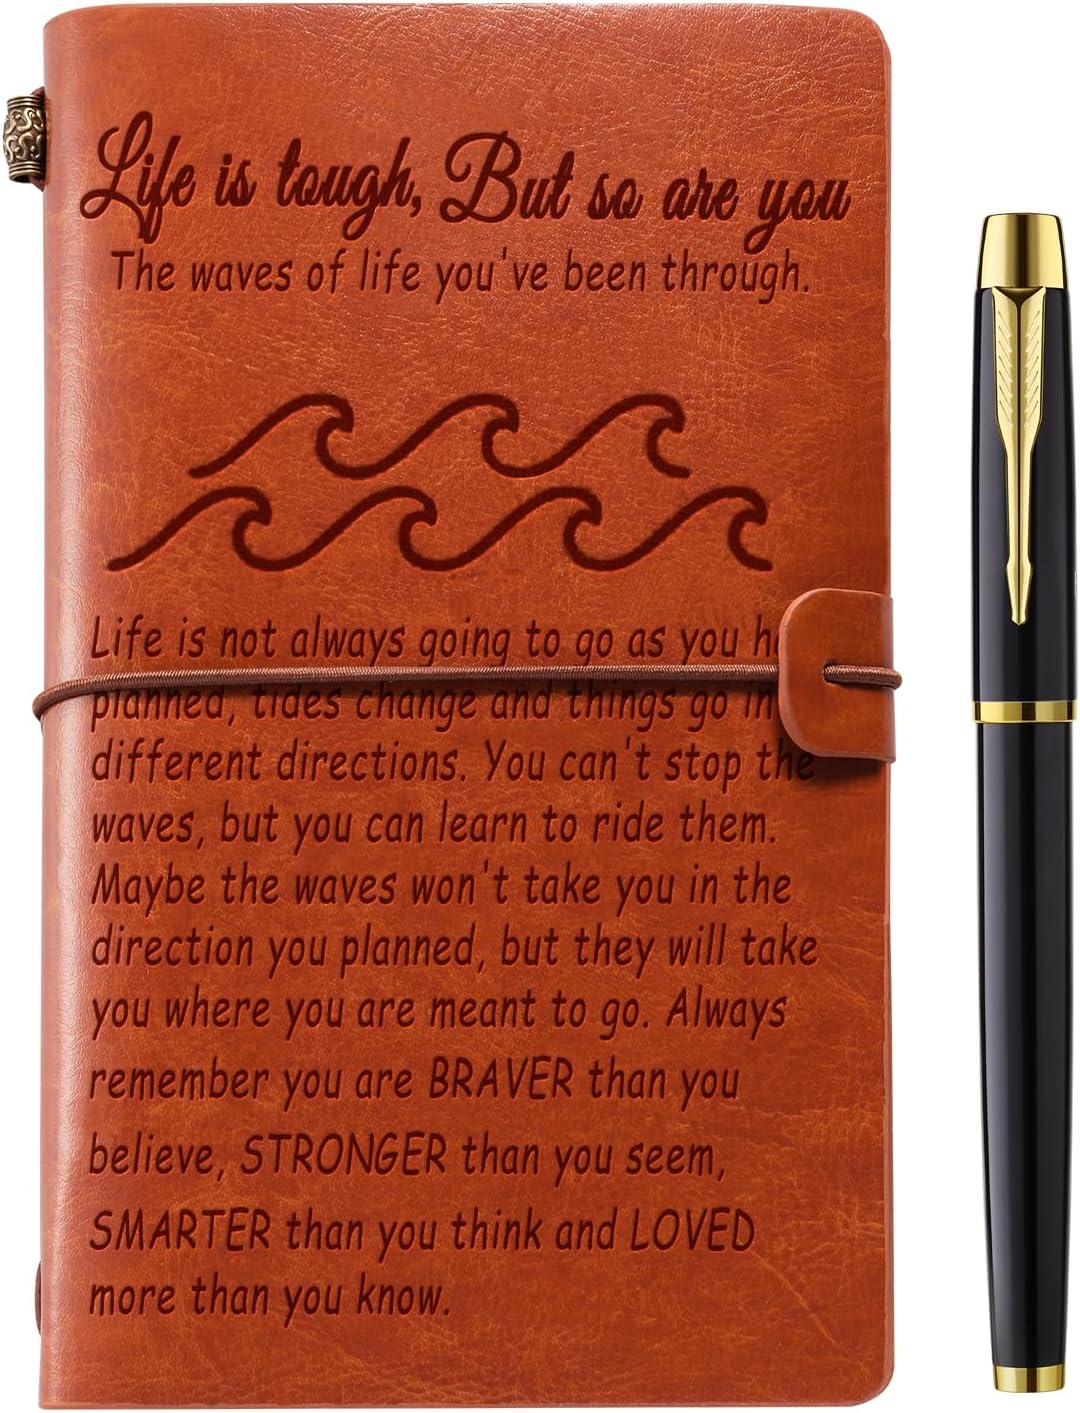 Life is tough, But so are you
The waves of life you've been through.
Life is not always going to go as you
planned, tides change and things go in
different directions. You can't stop the
waves, but you can learn to ride them.
Maybe the waves won't take you in the
direction you planned, but they will take
you where you are meant to go. Always
remember you are BRAVER than you
believe, STRONGER than you seem,
SMARTER than you think and LOVED
more than you know.